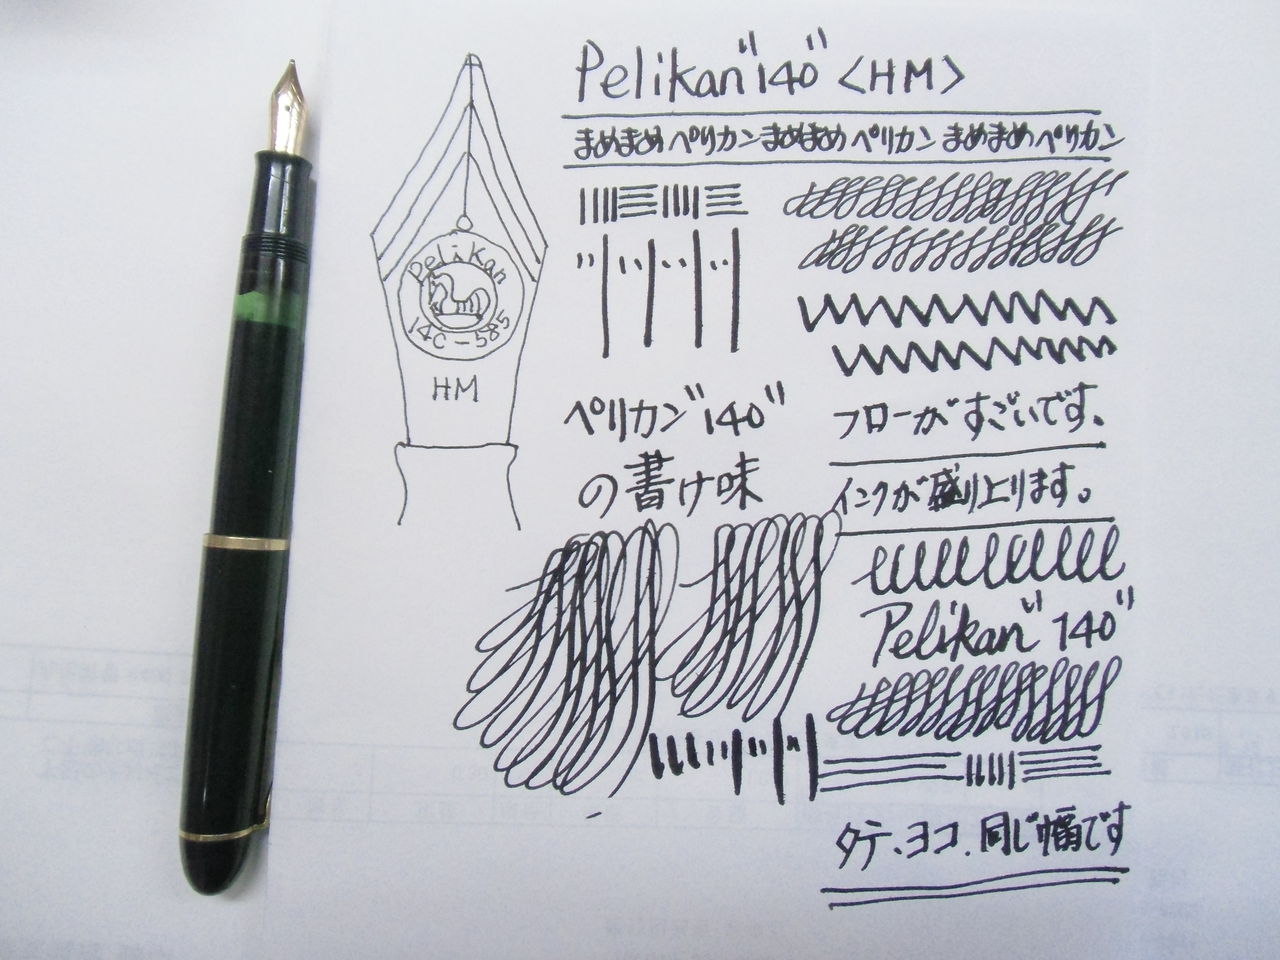 Pelikan "140" <HM>
まめまめペリカンまめまめペリカン まめまめペリカン
Pelikan
14C-585
HM
ペリカン"140"
の書け味
フローがすごいです。
インクが盛り上ります。
Pelikan "140"
タテ、ヨコ、同じ幅です